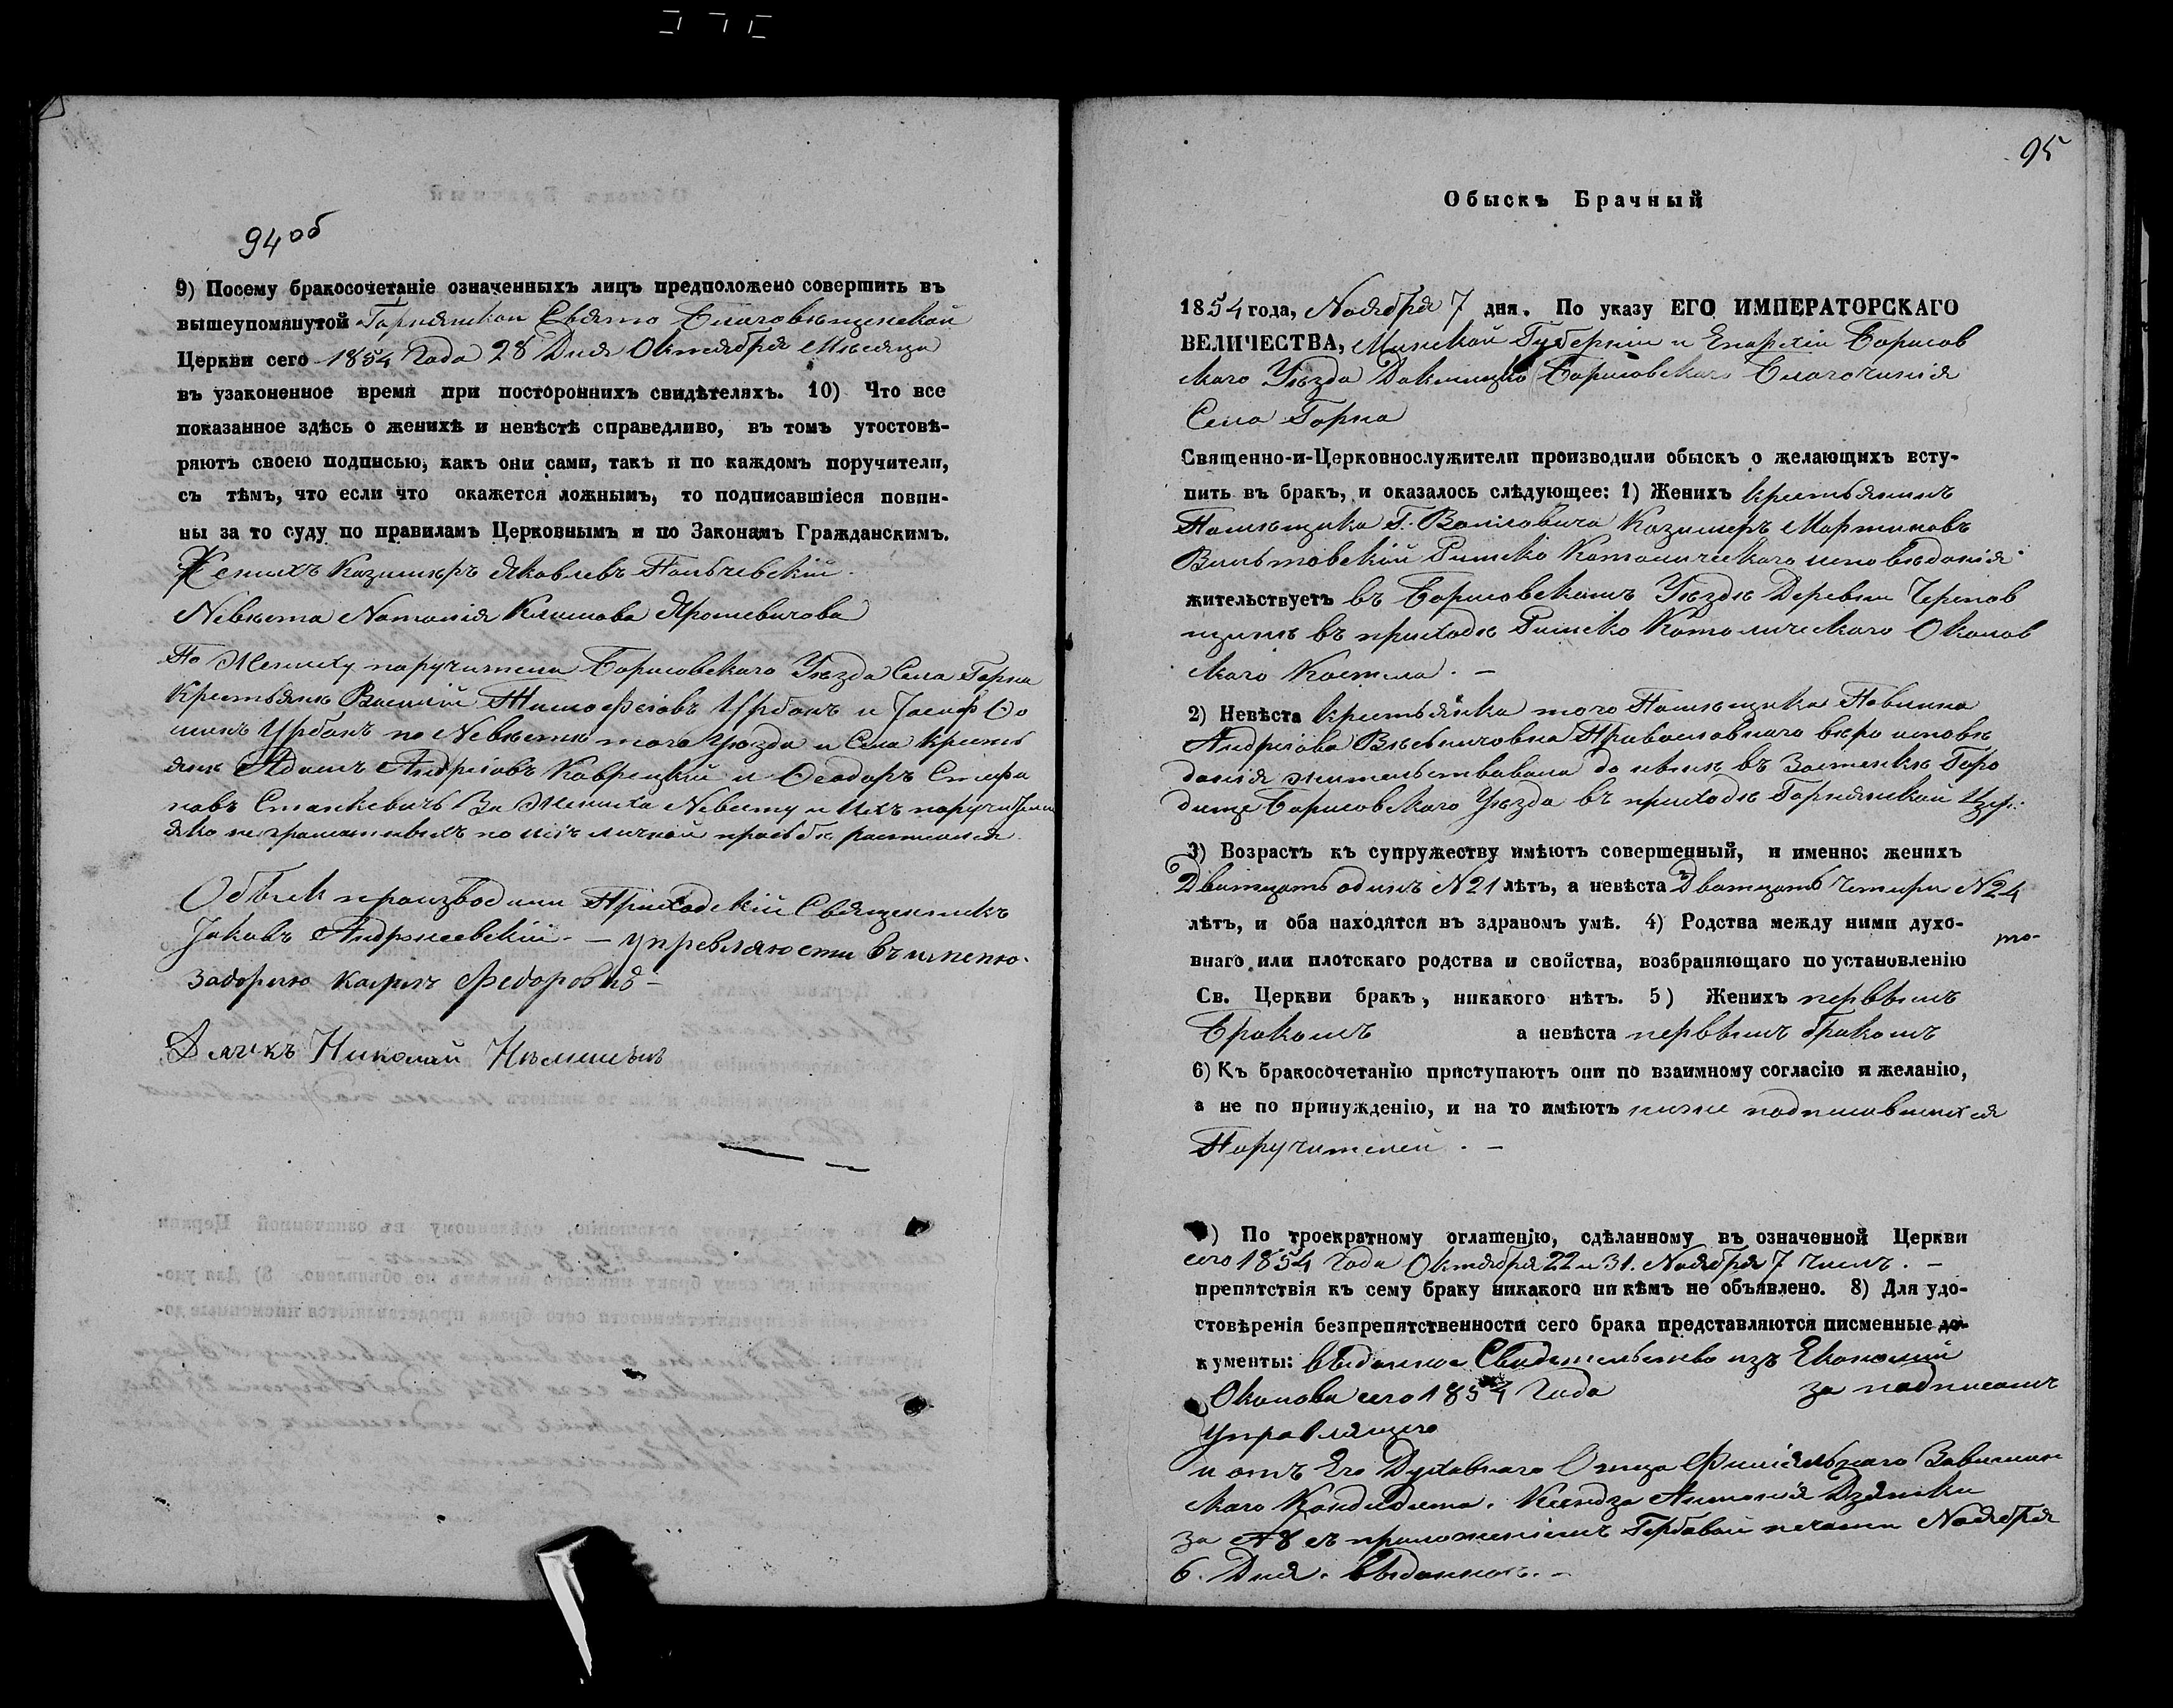 94 об
9) Посему бракосочетаніе означенныхъ лицъ предположено совершить въ
вышеупомянутой Горнянской Свято Благовѣщенской
Церкви сего 1854 Года 28 Дня Октября Мѣсяца
въ узаконенное время при постороннихъ свидѣтеляхъ. 10) Что все
показанное здѣсь о женихѣ и невѣстѣ справедливо, въ томъ утостовѣ-
ряютъ своею подписью, какъ они сами, такъ и по каждомъ поручители,
съ тѣмъ, что если что окажется ложнымъ, то подписавшіеся повин-
ны за то суду по правиламъ Церковнымъ и по Законамъ Гражданскимъ.
Женихъ Казимиръ Яковлевъ
Невѣста Наталія Климова Ярошевичова
По Жениху поручители Борисовскаго Уѣзда Села Горна
Крестьяне Василій Тимофеіовъ Урбанъ и Іосифъ Фо
минъ Урбанъ по Невѣстѣ того Уѣзда и Села Кресть
яне Адамъ Андреіовъ Каврецкій и Феодоръ Стефа
новъ Станкевичъ За Жениха Невесту и Ихъ поручители
яко не грамотныхъ по ихъ личной просьбѣ росписался
Обыск производили Приходскій Священникъ
Іаковъ
Карлъ Федоровъ
Дьячкъ Николай
95
Обыскъ Брачный
1854 года, Ноября 7 дня. По указу ЕГО ИМПЕРАТОРСКАГО
ВЕЛИЧЕСТВА, Минской Губерніи и Епархіи Борисов
скаго Уѣзда Докшицко Борисовскаго Благочинія
Села Горна
Священно-и-Церковнослужители производили обыскъ о желающихъ всту-
пить въ бракъ, и оказалось слѣдующее: 1) Женихъ крестьянинъ
Помѣщика Г. Казимеръ Мартиновъ
Римско Католическаго исповѣданія
жительствуетъ въ Борисовскомъ Уѣздѣ Деревни Чернов
щинѣ въ приходѣ Римско Католическаго Околов
скаго Костела. —
2) Невѣста крестьянка того Помѣщика Павлина
Андреіова Православнаго вѣро исповѣ
данія жительствовала до нынѣ въ Застенкѣ Горо
дище Борисовскаго Уѣзда въ приходѣ Горнянской Цер.
3) Возрастъ къ супружеству имѣютъ совершенный, и именно: женихъ
Дватцать одинъ N21 лѣтъ, а невѣста Дватцать Четыри N24
лѣтъ, и оба находятся въ здравомъ умѣ. 4) Родства между ними духо-
внаго или плотскаго родства и свойства, возбраняющаго по установленію
Св. Церкви бракъ, никакого нѣтъ. 5) Женихъ первымъ
Бракомъ а невѣста первымъ бракомъ
6) Къ бракосочетанію приступаютъ они по взаимному согласію и желанію,
а не по принужденію, и на то имѣютъ ниже подписавшихся
Поручителей. —
) По троекратному оглашенію, сдѣланному въ означенной Церкви
сего 1854 Года Октября 22 и 31. Ноября 7 числъ. —
препятствія къ сему браку никакого ни кѣмъ не объявлено. 8) Для удо-
стовѣренія безпрепятственности сего брака представляются писменные до-
кументы: выданное Свидетельство изъ Економіи
Околова сего 1854 Года за подписомъ
Управлящего
и отъ Его Духовнаго Отца Филіяльнаго
скаго Ксендза Антонія
за N 8 съ приложеніемъ Гербовой печати Ноября
6. Дня. выданнаго. —